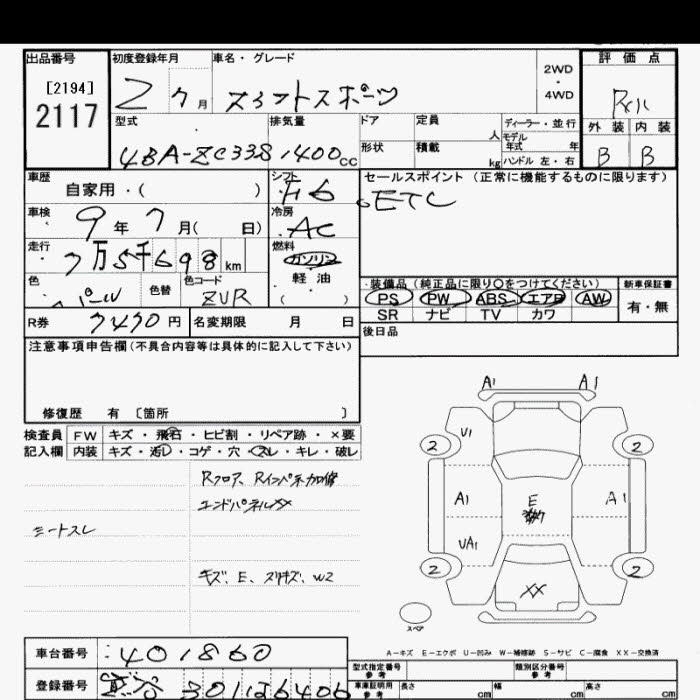 出品番号 初度登録年月 車名・グレード 2WD ・ 4WD 評価点
[2194]
2117
2 7月 スイフトスポーツ
型式 排気量 ドア 定員 人 ディーラー・並行 外装 内装
4BA-ZC33S 1400cc 形状 積載 kg モデル年式 年 B B
ハンドル 左・右
車歴 シフト セールスポイント(正常に機能するものに限ります)
自家用・( ) F6 ETC
車検 9年7月( 日) 冷房 AC
走行 7万5千698km 燃料 ガソリン
軽油
( )
色 パール 色替 色コード ZVR
装備品(純正品に限り〇をつけてください) 新車保証書
PS PW ABS エアB AW 有・無
SR ナビ TV カワ
R券 7470円 名変期限 月 日 後日品
注意事項申告欄(不具合内容等は具体的に記入して下さい)
修復歴 有 〔箇所 〕
検査員 FW キズ・飛石・ヒビ割・リペア跡・×要
記入欄 内装 キズ・汚レ・コゲ・穴・スレ・キレ・破レ
Rフロア、Rインパネ加修
エンドパネルXX
シートスレ
キズ、E、スリキズ、W2
A1 A1
2 U1 2
A1 E A1
UA1
2 XX 2
スペア
A-キズ E-エクボ U-凹み W-補修跡 S-サビ C-腐食 XX-交換済
車台番号 401860
登録番号 301 126406
型式指定番号 参考 類別区分番号 参考
車庫証明用 参考 長さ cm 幅 cm 高さ cm